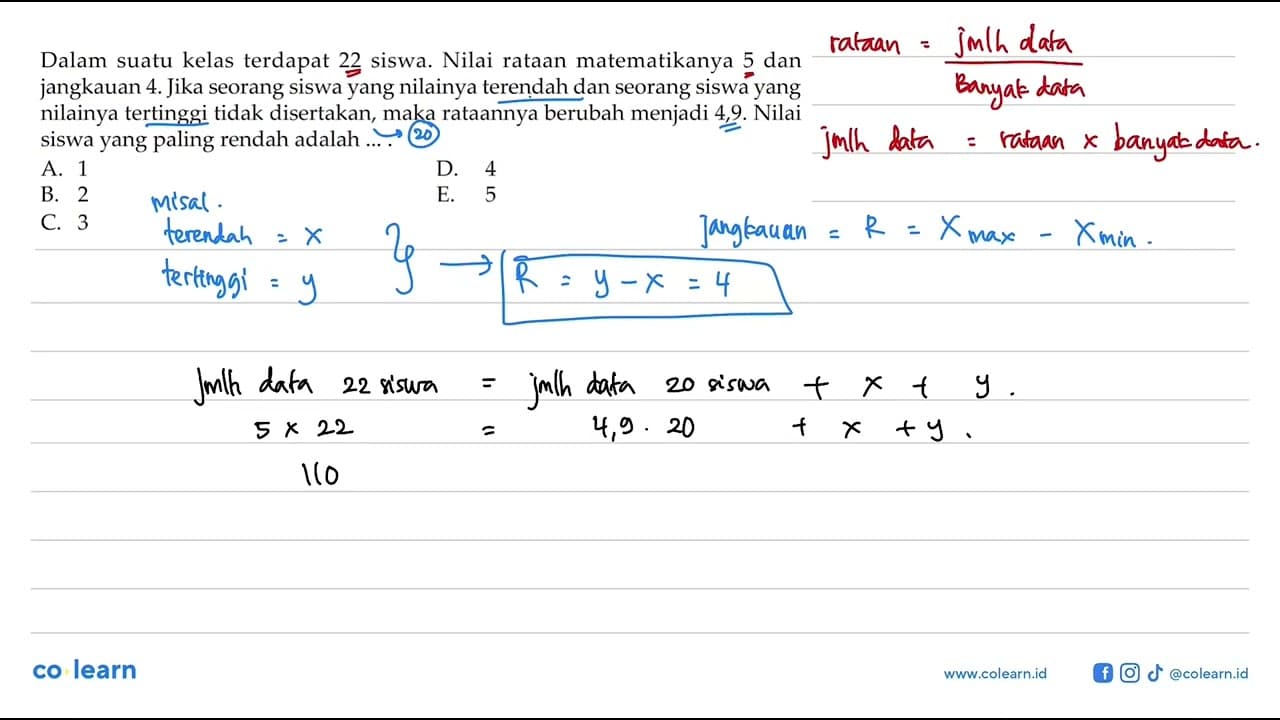 Dalam suatu kelas terdapat 22 siswa. Nilai rataan matematikanya 5 dan
jangkauan 4. Jika seorang siswa yang nilainya terendah dan seorang siswa yang
nilainya tertinggi tidak disertakan, maka rataannya berubah menjadi 4,9. Nilai
siswa yang paling rendah adalah ... . → 20
A. 1
B. 2
C. 3
D. 4
E. 5
rataan = jmlh data
Banyak data
jmlh data = rataan x banyak data.
misal.
terendah = x
tertinggi = y
→ R = y - x = 4
Jangkauan = R = Xmax - Xmin.
Jmlh data 22 siswa = jmlh data 20 siswa + x + y.
5 x 22 = 4,9 . 20 + x + y.
110
co learn
www.colearn.id
@colearn.id